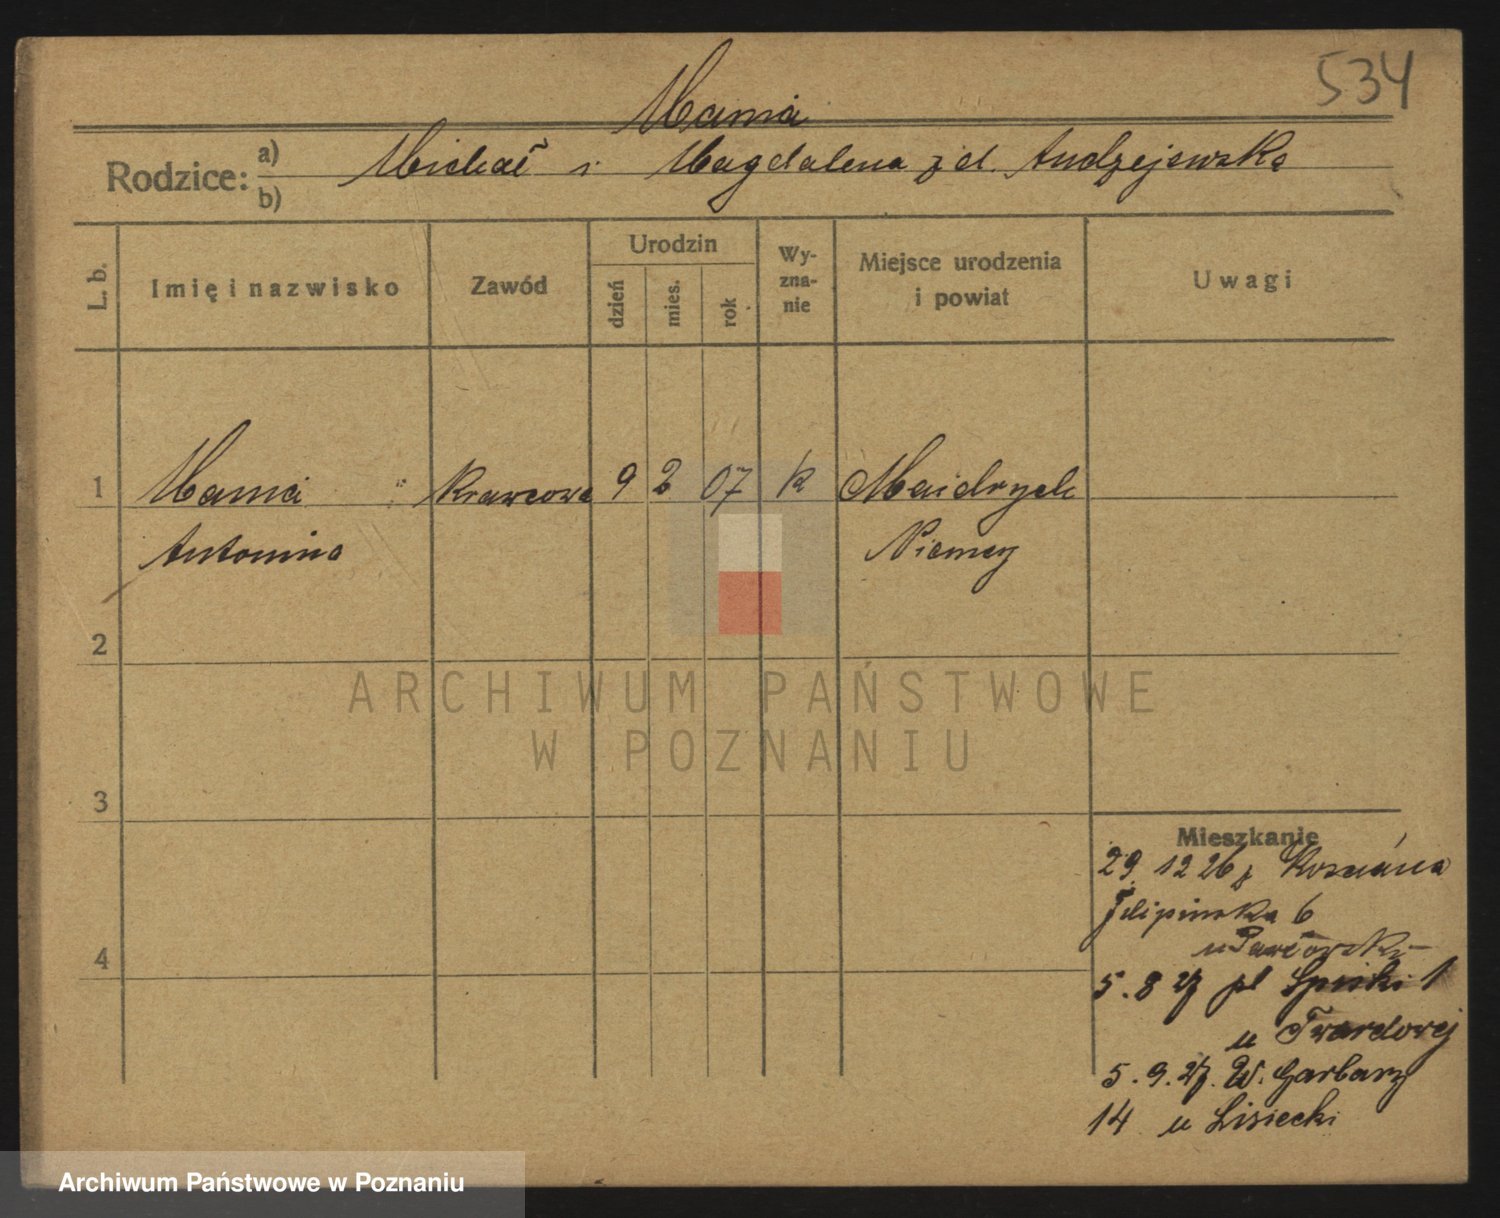 534
Mania
Rodzice: a) b) Michał i Magdalena z d. Andrzejewska
L. b.
Imię i nazwisko
Zawód
Urodzin
dzień
mies.
rok
Wy-
zna-
nie
Miejsce urodzenia
i powiat
Uwagi
1 Mania Krawcowa 9 2 07 k
Antonina Niemcy
2
3
4
Mieszkanie
29. 12 26 z
6
u
5. 8 27 pl 1
u Twardowej
5. 9. 27. W. Garbary
14 u Lisiecki
ARCHIWUM PAŃSTWOWE
W POZNANIU
Archiwum Państwowe w Poznaniu